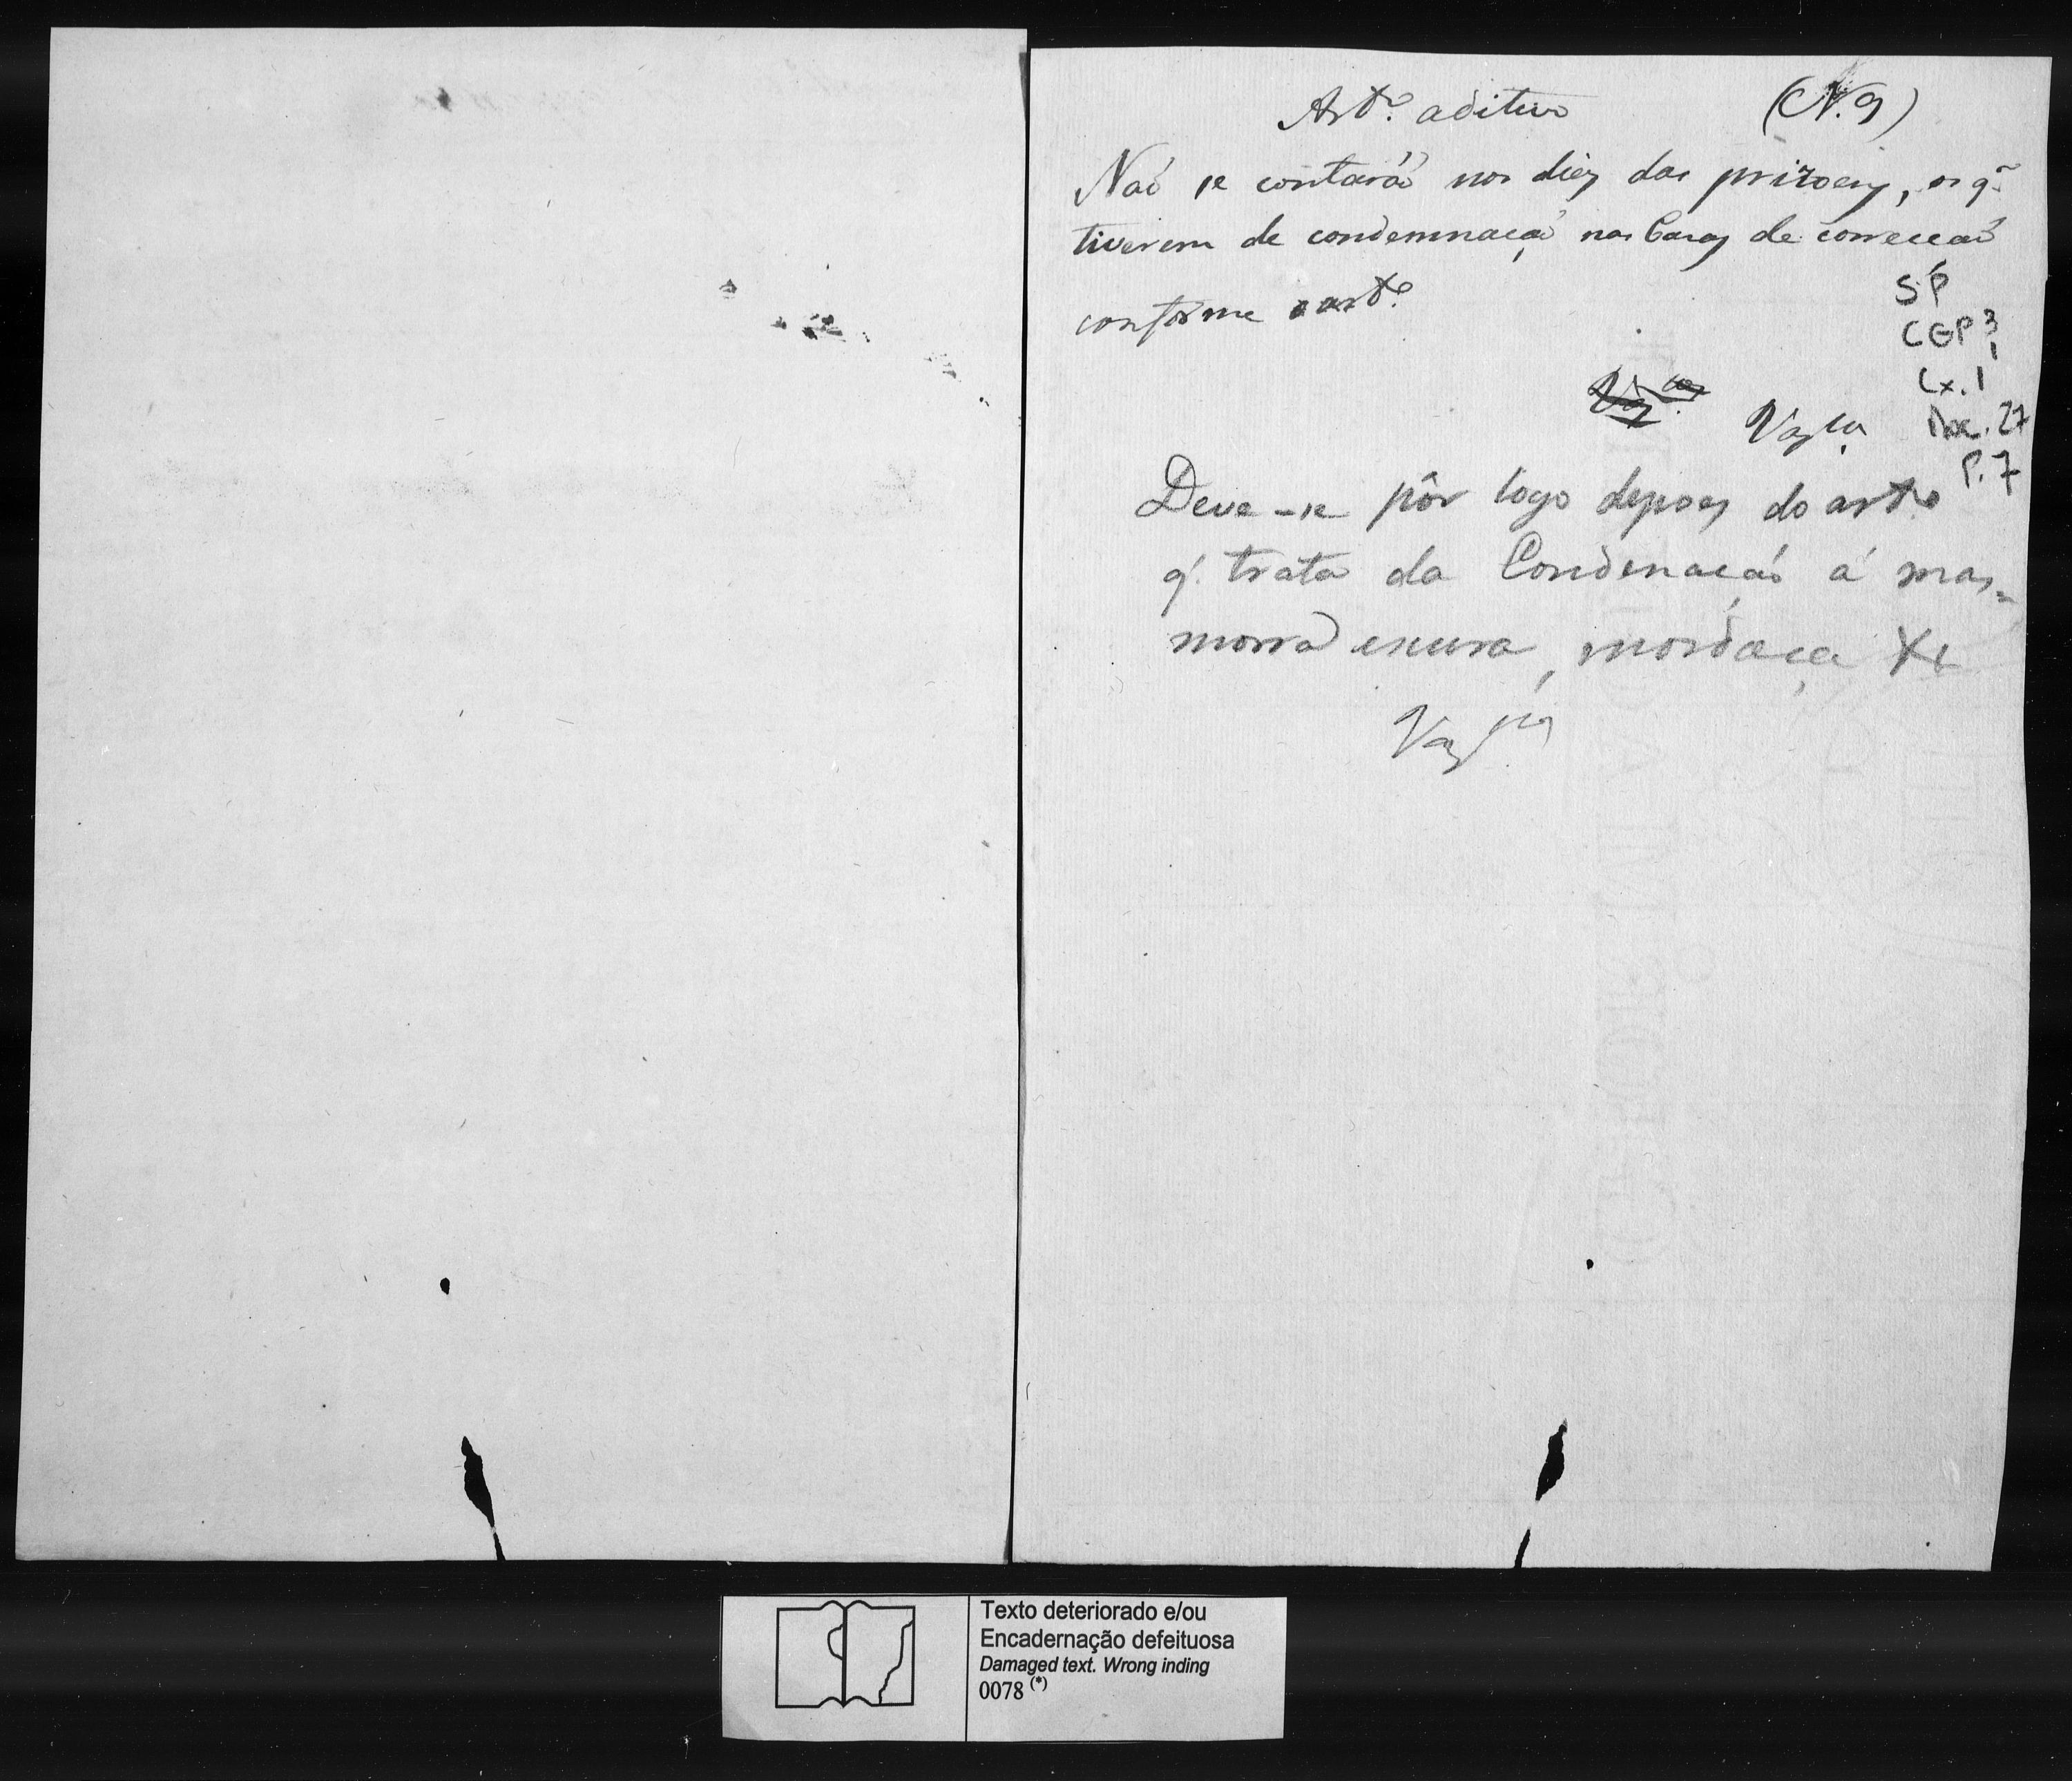 Art.º aditivo (N. 9)
Naõ se contaráõ nos dias das prizoens, os q̃
tiverem de condemnaçaõ nas Cazas de correcçaõ
conforme o art.º
SP
CGP 3
Cx. 1
Doc. 27
P. 7
Vas.cos
Deve-se pôr logo depoes do art.º
q̃ trata da Condenaçaõ á mas=
morra escura, mordaça &
Vas.cos
Texto deteriorado e/ou
Encadernação defeituosa
Damaged text. Wrong inding
0078 (*)